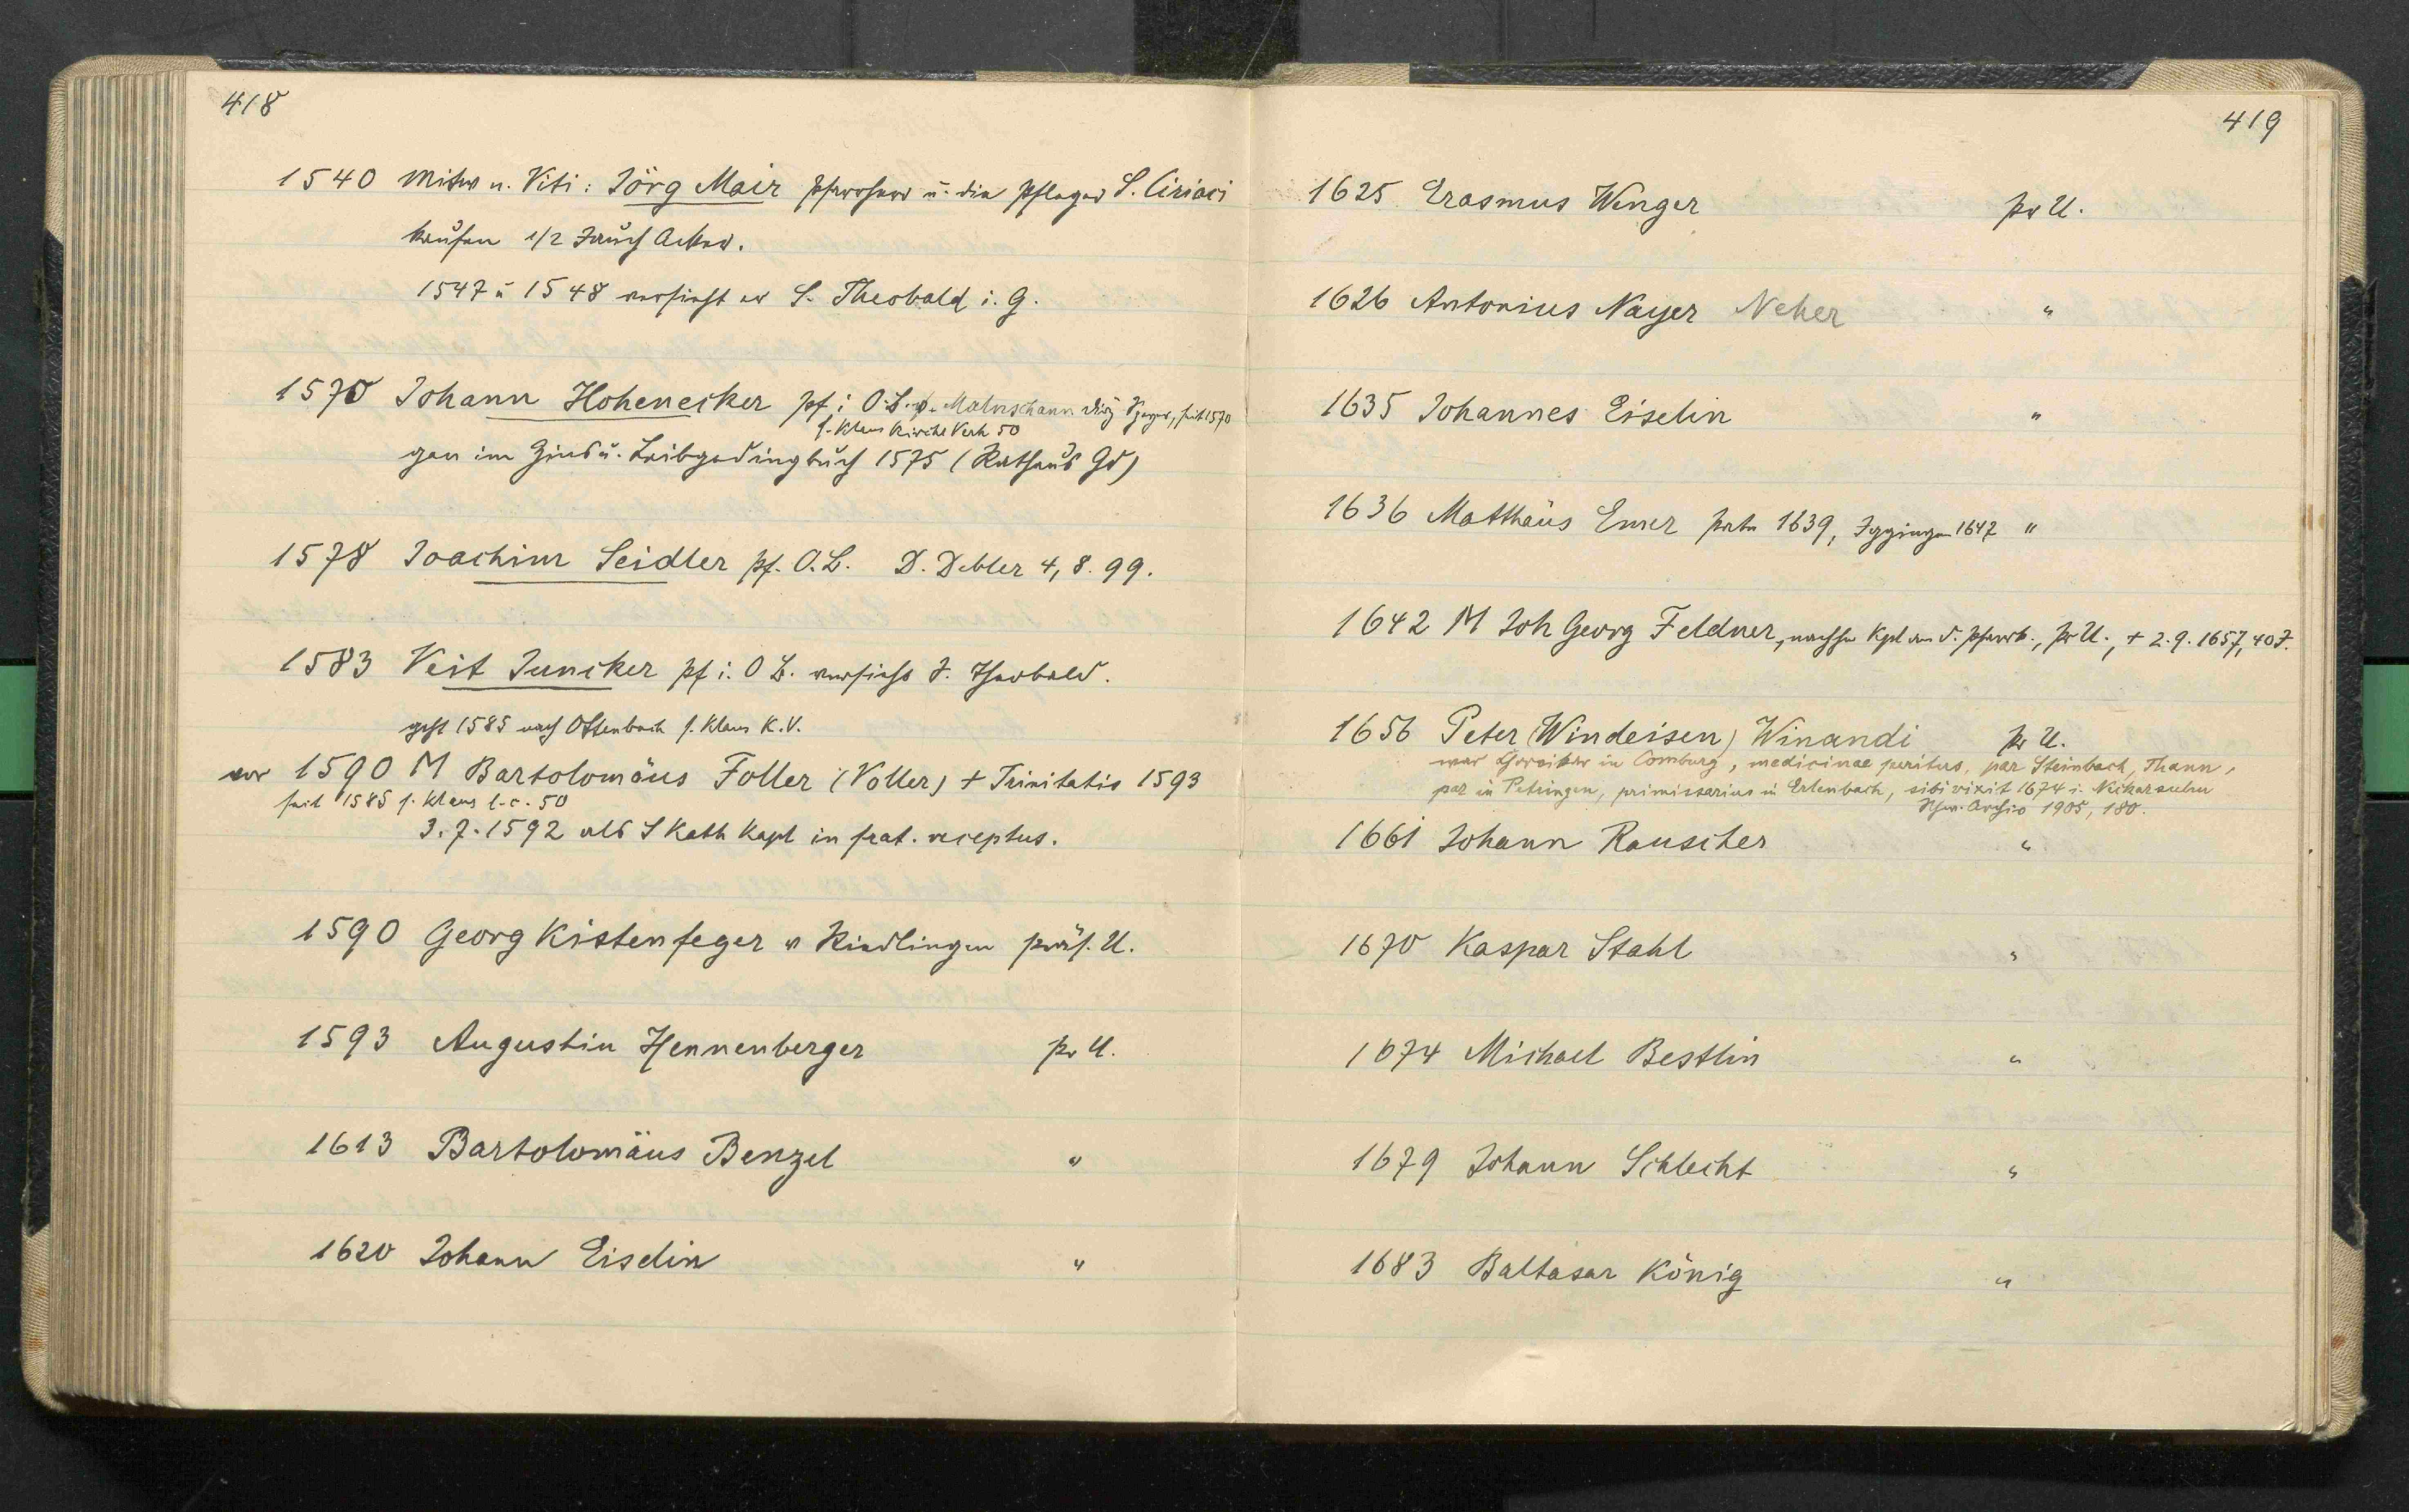 418
1540 Mitw n. Viti: Jörg Mair Pfarrherr u. die Pfleger S. Ciriaci
kaufen 1/2 Jauch Acker.
1547 u 1548 versieht er S. Theobald i. G.
1570 Johann Hohenecker pf. i O.B. seit 1570
s. Klaus Kirche Verk 50
gen im Zins u. Leibgedingbuch 1575 (Rathaus Gd)
1578 Joachim Seidler pf. O.B. D. Debler 4, 8. 99.
1583 Veit Juncker pf i. O B. versieht S. Theobald.
geht 1585 nach Ottenbach s. Klaus K.V.
vor 1590 M Bartolomäus Foller (Voller) + Trinitatis 1593
seit 1585 s. Klaus l.c. 50
3.7.1592 als S Kath Kapl in frat. receptus.
1590 Georg Kistenfeger v Riedlingen präs. U.
1593 Augustin Hennenberger pr U.
1613 Bartolomäus Benzel "
1620 Johann Eiselin "
419
1625 Erasmus Wenger pr U.
1626 Antonius Nayer Neher "
1635 Johannes Eiselin "
1636 Matthäus Emer 1639, Iggingen 1647 "
1642 M Joh Georg Feldner, nachher Kpl an d. Pfarrk., pr U., + 2.9.1657, 40 J.
1656 Peter (Windeisen) Winandi pr U.
war in Comburg, medicinae peritus, par Steinbach, Thann,
par in Petringen, primissarius in Erlenbach, sibi vixit 1674 i. Neckarsulm
Schw. Archiv 1905, 180.
1661 Johann Rauscher "
1670 Kaspar Stahl "
1674 Michael Bestlin "
1679 Johann Schlecht "
1683 Baltasar König "